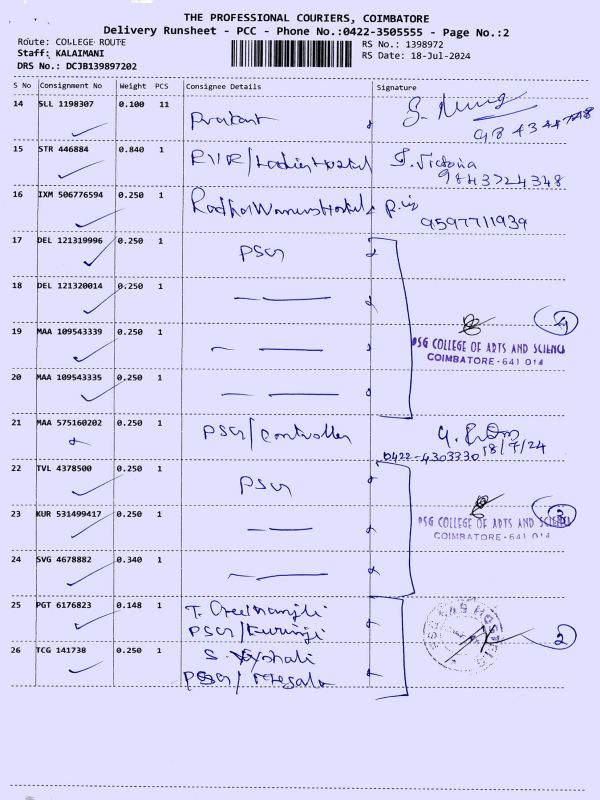 THE PROFESSIONAL COURIERS, COIMBATORE
Delivery Runsheet - PCC - Phone No.:0422-3505555 - Page No.:2
Route: COLLEGE ROUTE
Staff: KALAIMANI
DRS No.: DCJB139897202
RS No.: 1398972
RS Date: 18-Jul-2024
S No Consignment No Weight PCS Consignee Details Signature
14 SLL 1198307 0.100 11 Prakant
15 STR 446884 0.840 1 RVR/Ladies Hostel J. Victoria
9843724348
16 IXM 506776594 0.250 1 Radha Womens Hostel
9597711939
17 DEL 121319996 0.250 1 PSG
18 DEL 121320014 0.250 1
4
19 MAA 109543339 0.250 1
PSG COLLEGE OF ARTS AND SCIENCE
COIMBATORE - 641 014
20 MAA 109543335 0.250 1
21 MAA 575160202 0.250 1 PSG/Controller
0422-4303330 18/7/24
22 TVL 4378500 0.250 1 PSG
23 KUR 531499417 0.250 1
3
PSG COLLEGE OF ARTS AND SCIENCE
COIMBATORE - 641 014
24 SVG 4678882 0.340 1
25 PGT 6176823 0.148 1
PSG/Kurinji
2
26 TCG 141738 0.250 1
PSG/